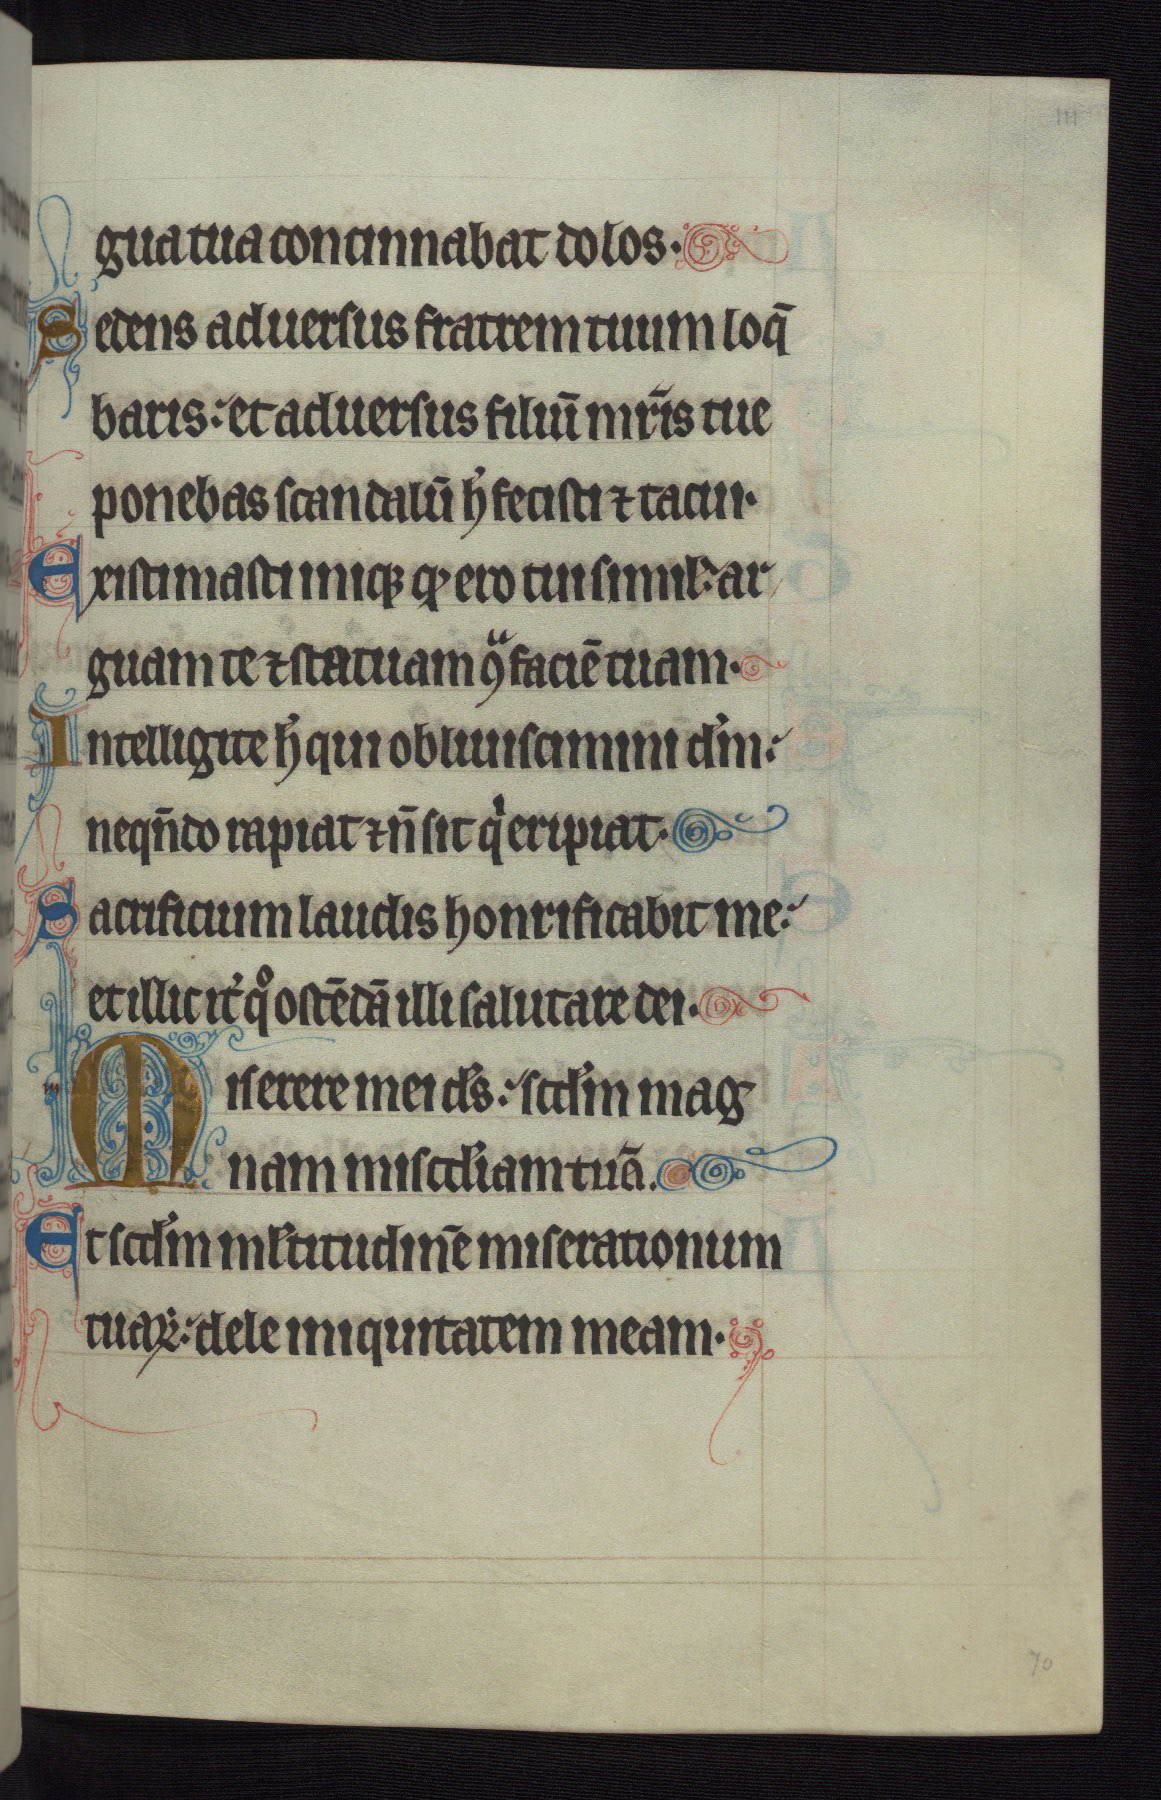 III
gua tua concinnabat dolos.
Sedens aduersus fratrem tuum loq̄
baris: et aduersus filiū mr̄is tue
ponebas scandalū h̄ fecisti ⁊ tacui.
Existimasti iniq̧ ꝙ ero tui simil': ar
guam te ⁊ statuam ꝯᵃ faciē tuam.
Intelligite h̄ qui obliuiscimini dn̄m:
neqn̄do rapiat ⁊ n̄ sit qⁱ eripiat.
Sacrificium laudis honrificabit me:
et illic it' qᵒ ostēdā illi salutare dei.
Miserere mei ds̄: scd'm mag
nam miscd'iam tuā.
Et scd'm ml'titudinē miserationum
tuaꝝ: dele iniquitatem meam.
70